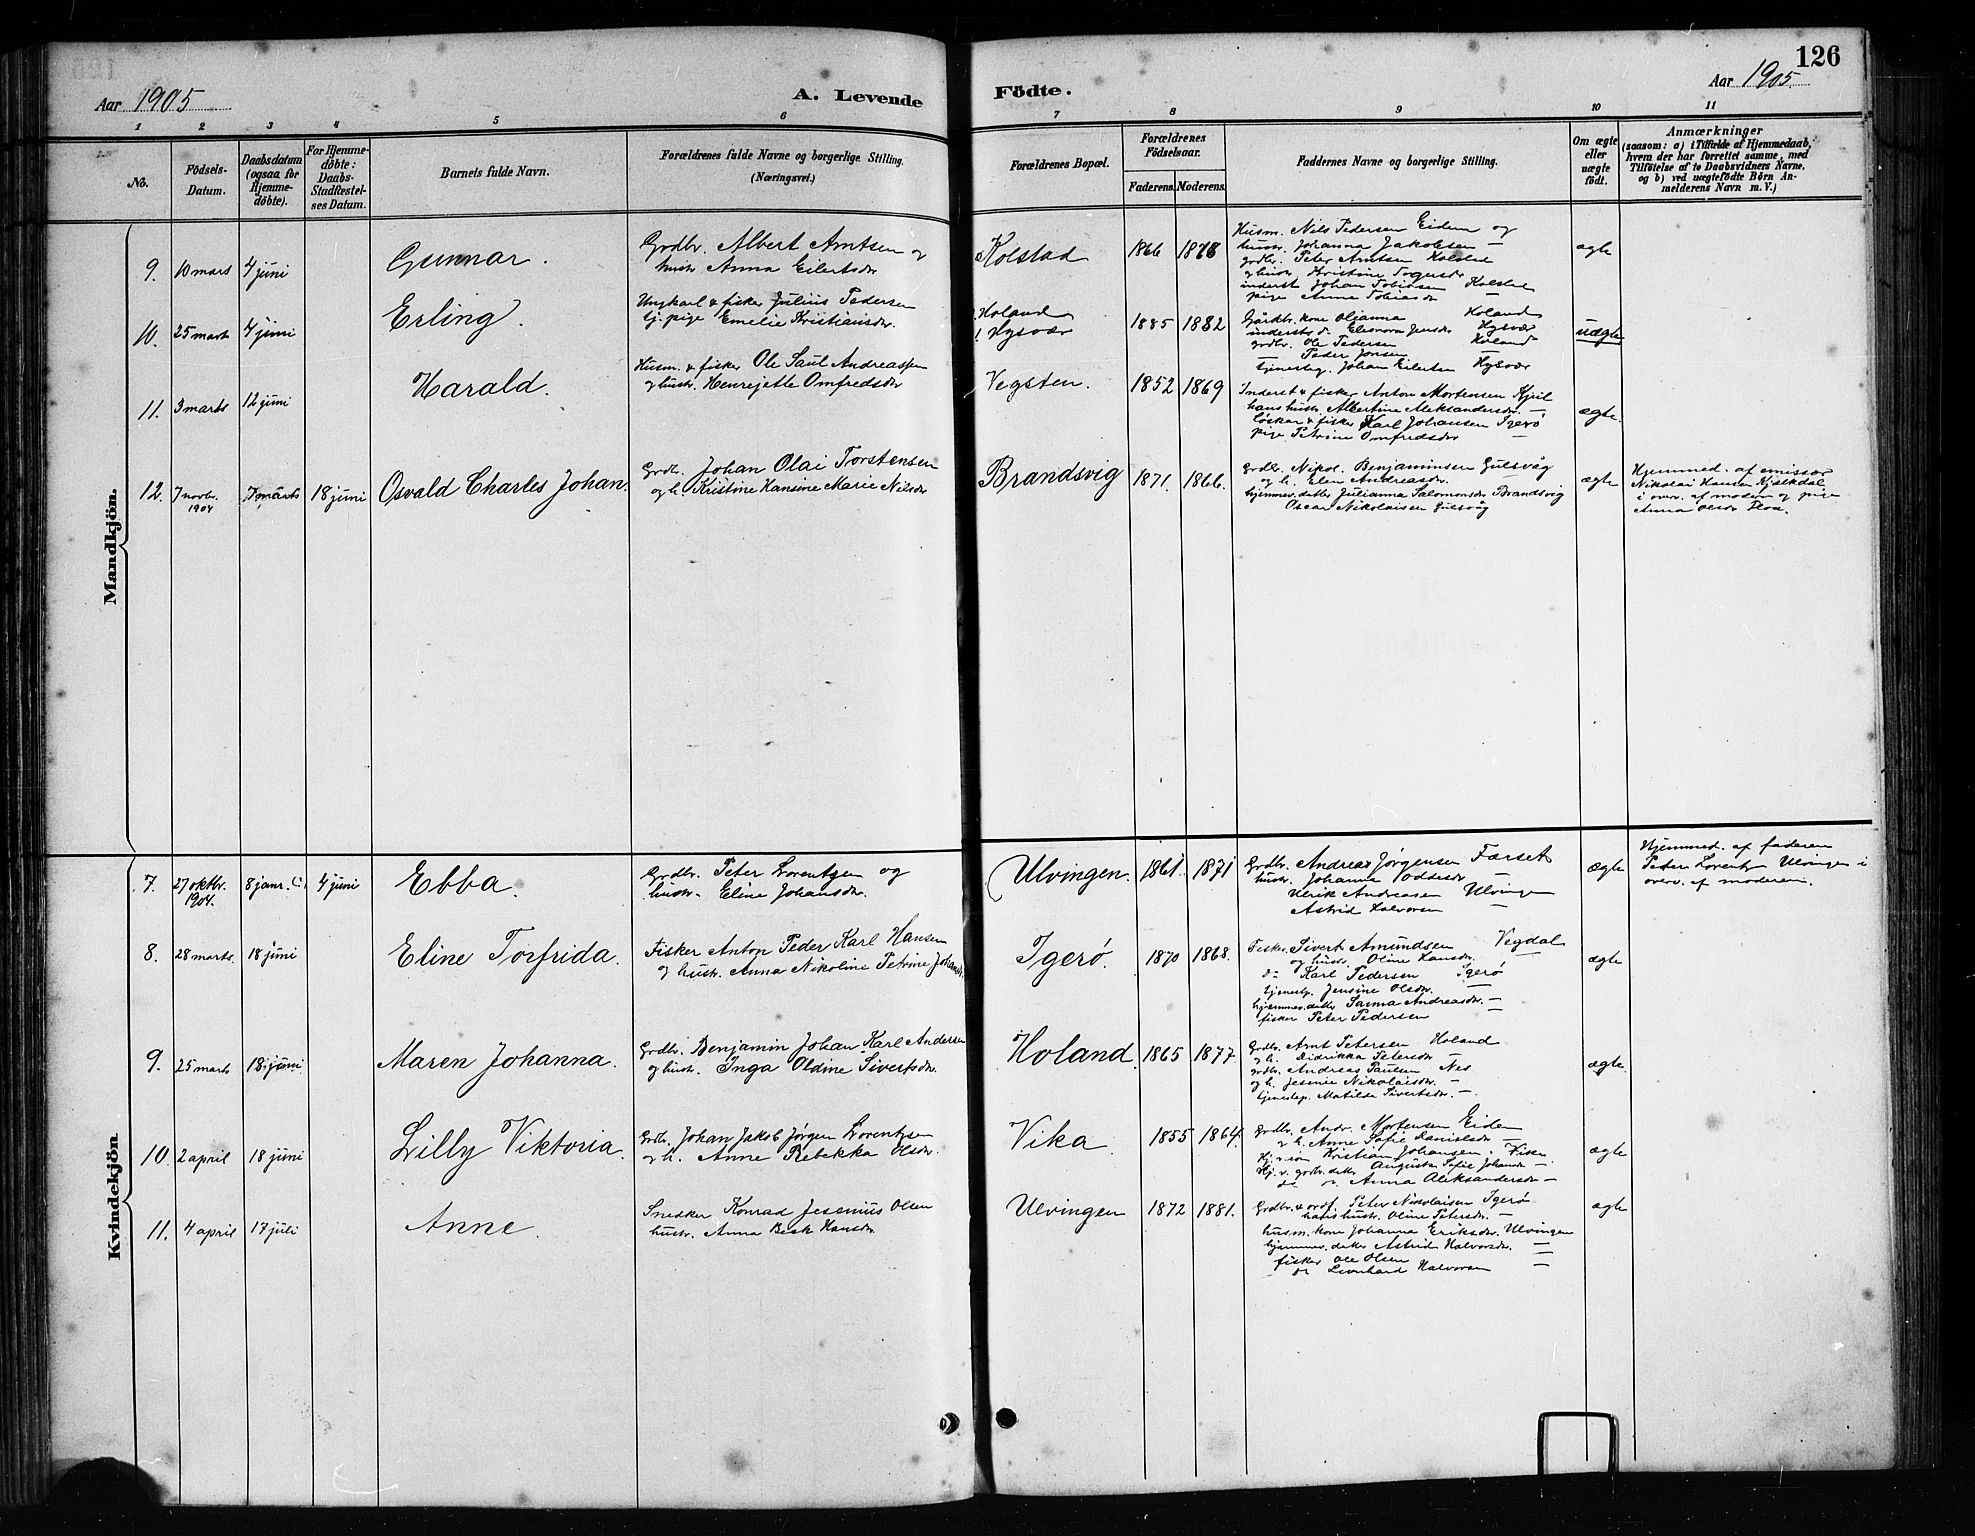 126
Aar 1905
A. Levende Födte.
Aar 1905.
1 2 3 4 5 6 7 8 9 10 11
No.
Födsels-
Datum.
Daabsdatum
(ogsaa for
Hjemme-
döbte).
For Hjemme-
döbte:
Daabs-
Stadfæstel-
ses Datum.
Barnets fulde Navn.
Forældrenes fulde Navne og borgerlige Stilling.
(Næringsvei.)
Forældrenes Bopæl.
Forældrenes
Födselsaar.
Faderens. Moderens.
Faddernes Navne og borgerlige Stilling.
Om ægte
eller
uægte
födt.
Anmærkninger
(saasom: a) i Tilfælde af Hjemmedaab,
hvem der har forrettet samme, med
Tilföielse af to Daabsvidners Navne.
og b) ved uægtefödte Börn An-
melderens Navn m. V.)
Mandkjön.
9. 10 mars 4 juni Gunnar.
Grdbr. Albert Arntsen og
hustr. Anna Eilertsdr
Kolstad 1866 1878
Husm. Nils Pedersen Eidem og
hustr. Johanna Jakobsen —
grdbr. Peter Arntsen Kolstad
og hustr. Kristine
inderst Johan Tobiasen Kolstad
pige Anne Tobiasdr —
ægte
10. 25 marts 4 juni Erling.
Ungkarl & fisker Julius Pedersen
tj. pige Emelie Kristiansdr.
Holand
! Hysvær 1885 1882
Gårdbr. kone Oljanna Holand
Eleonora Jensdr Hysvær
grdbr. Ole Pedersen Holand
Peder Jonsen —
tjenesteg. Johan Eilertsen Hysvær
uægte
11. 3 marts 12 juni Harald.
Husm. & fisker Ole Saul Andreassen
og hustr. Henrejette Omfredsdr
Vegsten. 1852 1869
Inderst & fisker Anton Mortensen Kjul
hans hustr. Albertine Aleksandersdr. —
löskar & fisker Karl Johansen Igerö
pige Petrine Omfredsdr —
ægte
12. 7 novbr. 1904 7 marts 18 juni Osvald Charles Johan.
Grdb. Johan Olai Torstensen
og h. Kristine Hansine Marie Nilsdr
Brandsvig 1871. 1866.
Grdbr. Nikol. Benjaminsen Gulsvåg
og h. Elen Andreasdr. —
hjemmev. datter Julianna Salomonsdr Brandsvig
Oscar Nikolaisen Gulsvåg
ægte
Hjemmed. af emissær
Nikolai Hansen Kjelkdal
i overv. af moder og pige
Anna Olsdr Floa.
Kvindekjön
7. 27 oktbr. 1904. 8 janr. 4 juni Ebba.
Grdbr. Peter Lorentzen og
hustr. Eline Johansdr.
Ulvingen. 1861. 1871
Grdbr. Andreas Jörgensen Færset
hustr. Johanna Oddesdr —
Ulrik Andreasen Ulvingen
Astrid Halvorsen —
ægte
Hjemmed. af faderen
Peder Lorentz. Ulvingen i
overv. af moderen.
8. 28 marts. 18 juni Eline Torfrida.
Fisker Anton Peder Karl Hansen
og hustr. Anna Nikoline Petrine Johansdr.
Igerö. 1870 1868.
Fisker Sivert Amundsen Vegdal
og hustr. Oline Hansdr. —
do Karl Pedersen Igerö
tjenestp. Jensine Olsdr. —
hjemmev. datter Sanna Andreasdr. —
fisker Peter Pedersen —
ægte
9. 25 marts 18 juni Maren Johanna.
Grdbr. Benjamin Johan Karl Andersen
og hustr. Inga Oldine Sivertsdr.
Holand 1865 1877.
Grdbr. Arnt Petersen Holand
og h. Didrikka Petersdr —
grdbr. Andreas Paulsen Nes
og h. Jesmie Nikolaisdr. —
tjenestep. Matilda Sivertsdr. —
ægte
10. 2 april 18 juni Lilly Viktoria.
Grdbr. Johan Jakob Jörgen Lorentzen
og h. Anne Rebekka Olsdr.
Vika 1855 1864.
Grdbr. Andr. Mortensen Eiden
og h. Anne Sofie Danielsdr —
Hj. v. sön Kristian Johansen
Hj. v. grdbr. datter Augusta Sofie Johansdr —
do do Anna Aleksandersdr —
ægte
11. 4 april 17 juli Anne.
Snedker Konrad Jessenius Olsen
hustr. Anna Beck Hansdr.
Ulvingen 1872 1881.
Grdbr. & ordf. Peter Nikolaisen Igerö
hans hustr. Oline Petersdr. —
husm. kone Johanna Eriksdr. Ulvingen
hjemmev. datter Astrid Halvorsdr. —
fisker Ole Olsen —
do Leonhard Halvorsen —
ægte